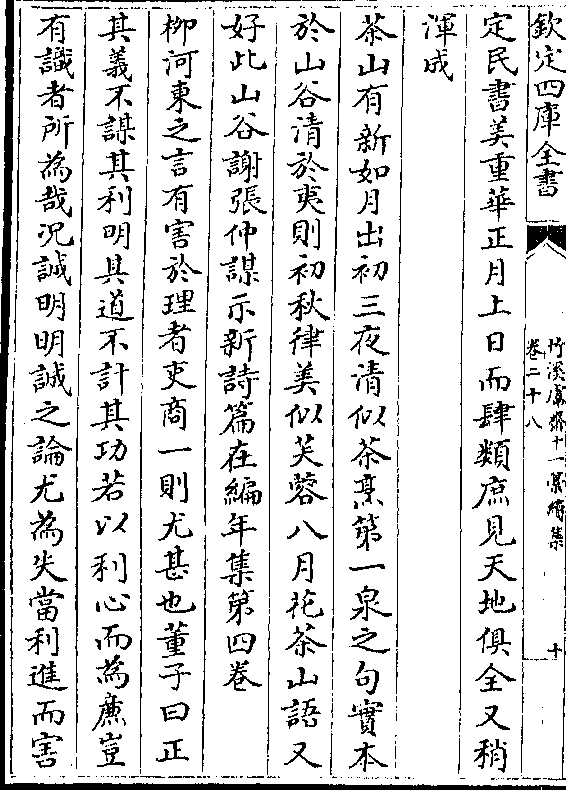 欽定四庫全書
竹溪鬳齋十一藁續集
卷二十八
十
定民書美重華正月上日而肆類庶見天地俱全又稍
渾成
茶山有新如月出初三夜清似茶烹第一泉之句實本
於山谷清於夷則初秋律美似芙蓉八月花茶山語又
好此山谷謝張仲謀示新詩篇在編年集第四卷
柳河東之言有害於理者吏商一則尤甚也董子曰正
其義不謀其利明其道不計其功若以利心而為廉豈
有識者所為哉況誠明明誠之論尤為失當利進而害